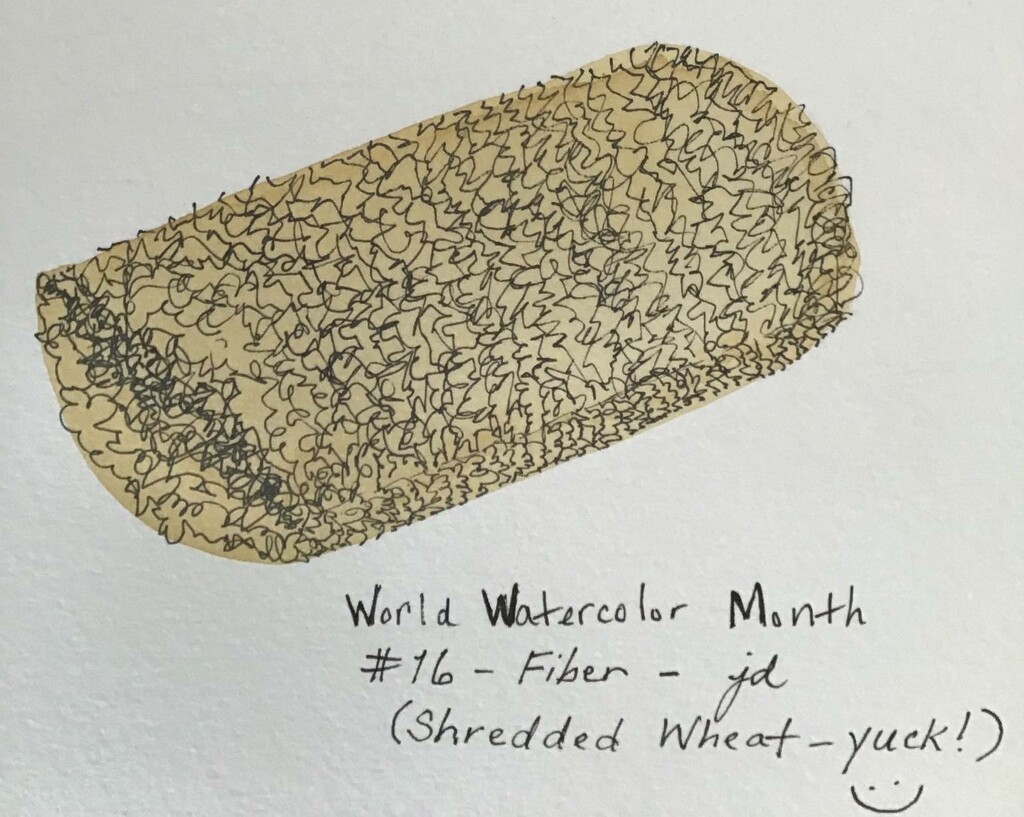 World Watercolor Month
#16 - Fiber - jd
(Shredded Wheat - yuck!)